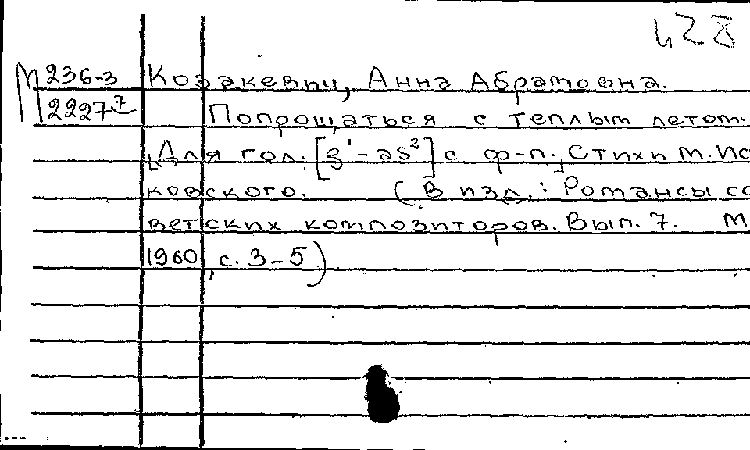 428
М 236-3 Козакевич, Анна Абрамовна.
2227 7 Попрощаться с теплым летом.
[Для гол. [g¹-as²] с ф-п.] Стихи М. Иса
ковского. (В изд.: Романсы со
ветских композиторов. Вып. 7. М
1960, с. 3-5)